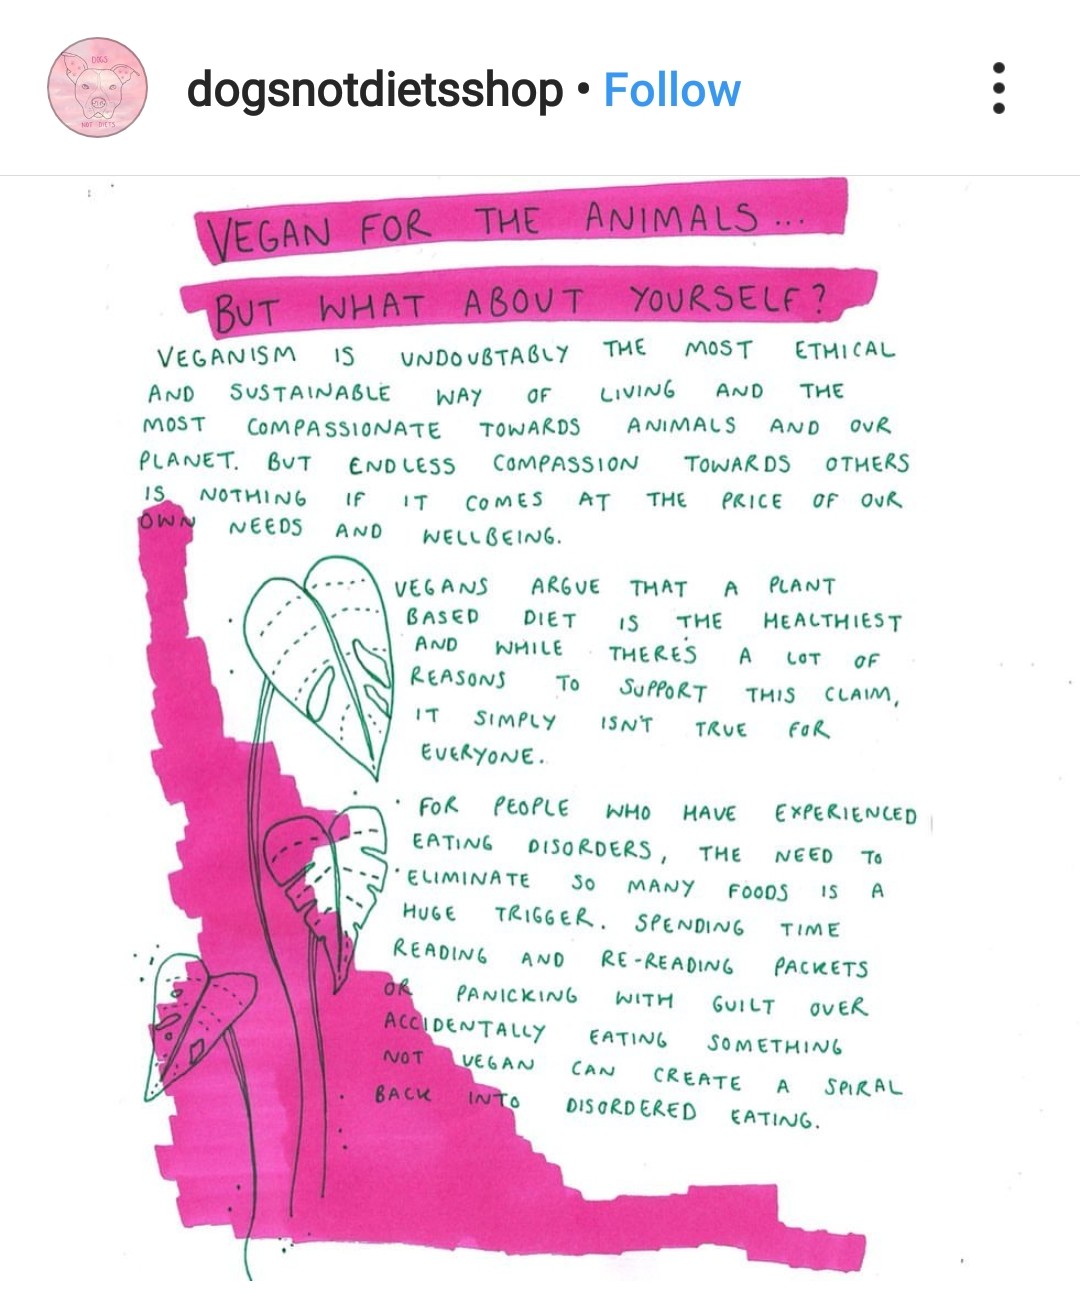 DOGS
NOT DIETS
dogsnotdietsshop • Follow
VEGAN FOR THE ANIMALS...
BUT WHAT ABOUT YOURSELF?
VEGANISM IS UNDOUBTABLY THE MOST ETHICAL
AND SUSTAINABLE WAY OF LIVING AND THE
MOST COMPASSIONATE TOWARDS ANIMALS AND OUR
PLANET. BUT ENDLESS COMPASSION TOWARDS OTHERS
IS NOTHING IF IT COMES AT THE PRICE OF OUR
OWN NEEDS AND WELLBEING.
VEGANS ARGUE THAT A PLANT
BASED DIET IS THE HEALTHIEST
AND WHILE THERE'S A LOT OF
REASONS TO SUPPORT THIS CLAIM,
IT SIMPLY ISN'T TRUE FOR
EVERYONE.
FOR PEOPLE WHO HAVE EXPERIENCED
EATING DISORDERS, THE NEED TO
ELIMINATE SO MANY FOODS IS A
HUGE TRIGGER. SPENDING TIME
READING AND RE-READING PACKETS
OR PANICKING WITH GUILT OVER
ACCIDENTALLY EATING SOMETHING
NOT VEGAN CAN CREATE A SPIRAL
BACK INTO DISORDERED EATING.